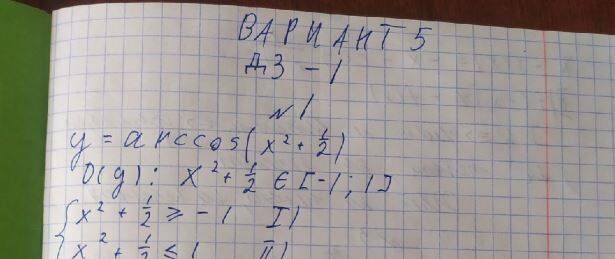 ВАРИАНТ 5
ДЗ - 1
№ 1
y = arccos(x² + 1/2)
D(y): x² + 1/2 ∈ [-1; 1]
{ x² + 1/2 ≥ -1 I)
x² + 1/2 ≤ 1 II)